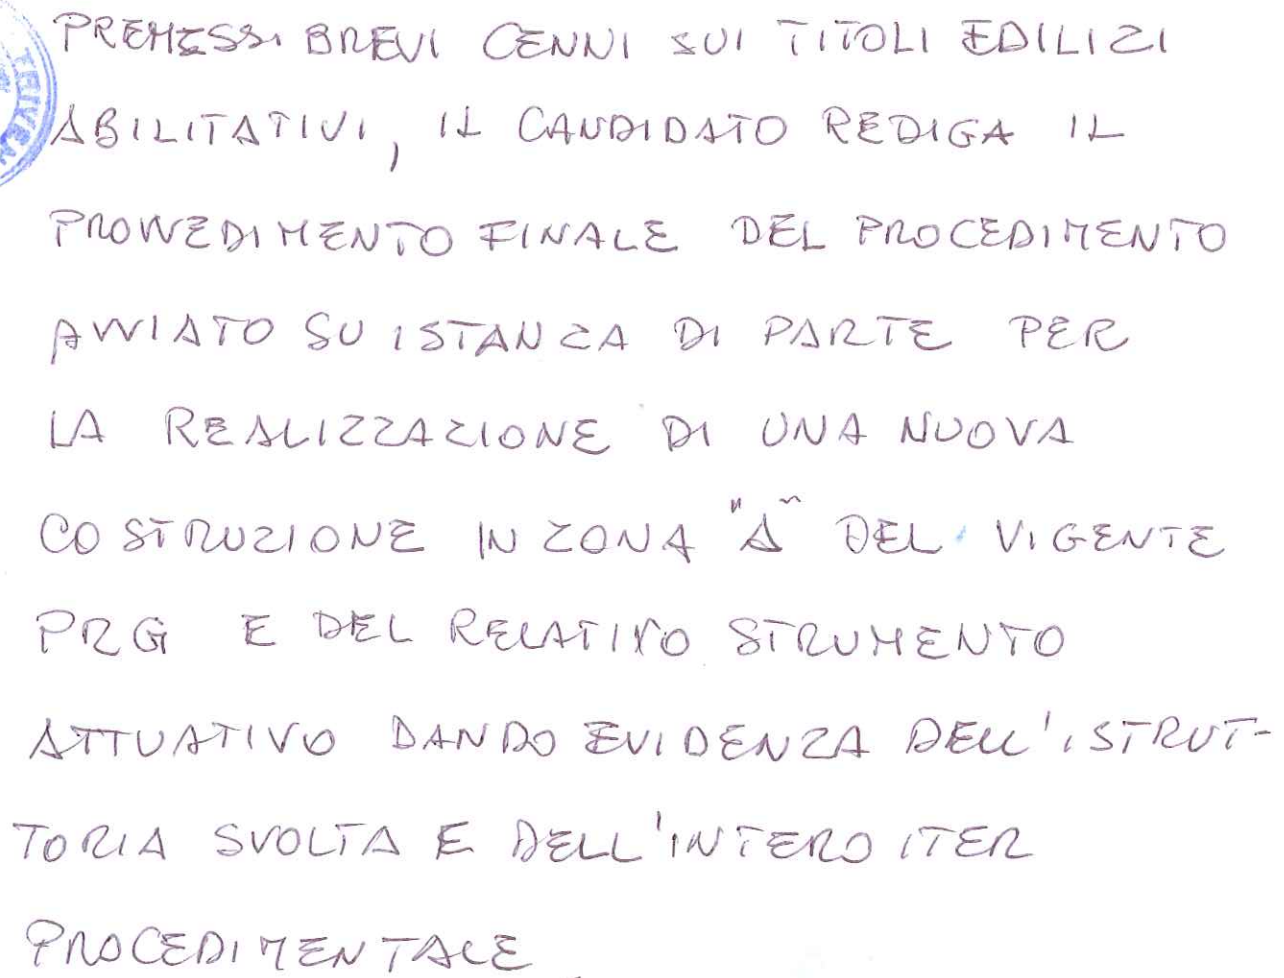 PREMESSI BREVI CENNI SUI TITOLI EDILIZI
ABILITATIVI, IL CANDIDATO REDIGA IL
PROVVEDIMENTO FINALE DEL PROCEDIMENTO
AVVIATO SU ISTANZA DI PARTE PER
LA REALIZZAZIONE DI UNA NUOVA
COSTRUZIONE IN ZONA "A" DEL VIGENTE
PRG E DEL RELATIVO STRUMENTO
ATTUATIVO DANDO EVIDENZA DELL'ISTRUT-
TORIA SVOLTA E DELL'INTERO ITER
PROCEDIMENTALE